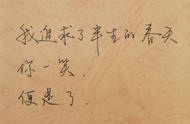 我追求了半生的春天
你一笑.
便是了.